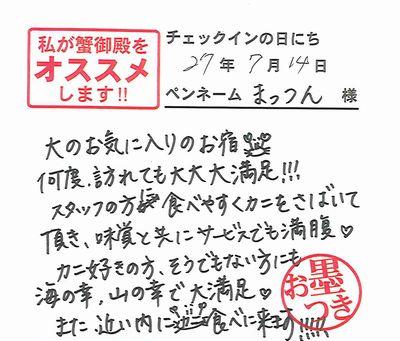 私が蟹御殿を
オススメ
します!!
チェックインの日にち
27年7月14日
ペンネーム まっつん 様
大のお気に入りのお宿
何度、訪れても大大大満足!!!
スタッフの方に食べやすくカニをさばいて
頂き、味覚と共にサービスでも満腹♡
カニ好きの方、そうでない方にも
海の幸、山の幸で大満足♡
また近い内に食べに来ます!!!!!
お墨つき